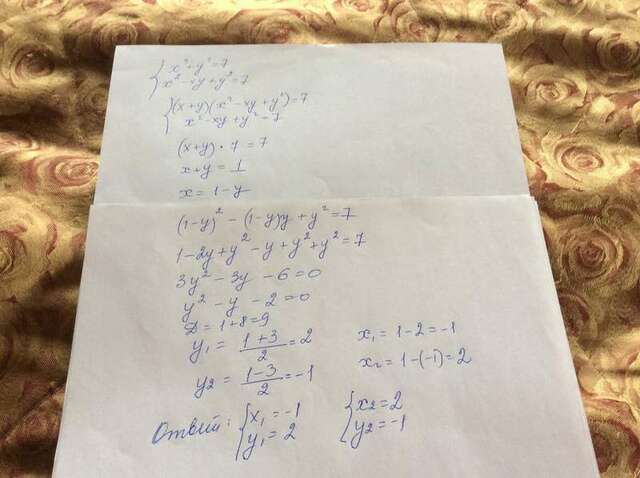 { x³+y³=7
x²-xy+y²=7
{ (x+y)(x²-xy+y²)=7
x²-xy+y²=7
(x+y)·7=7
x+y=1
x=1-y
(1-y)²-(1-y)y+y²=7
1-2y+y²-y+y²+y²=7
3y²-3y-6=0
y²-y-2=0
D=1+8=9
y₁=(1+3)/2=2 x₁=1-2=-1
y₂=(1-3)/2=-1 x₂=1-(-1)=2
Ответ: { x₁=-1 { x₂=2
y₁=2 y₂=-1